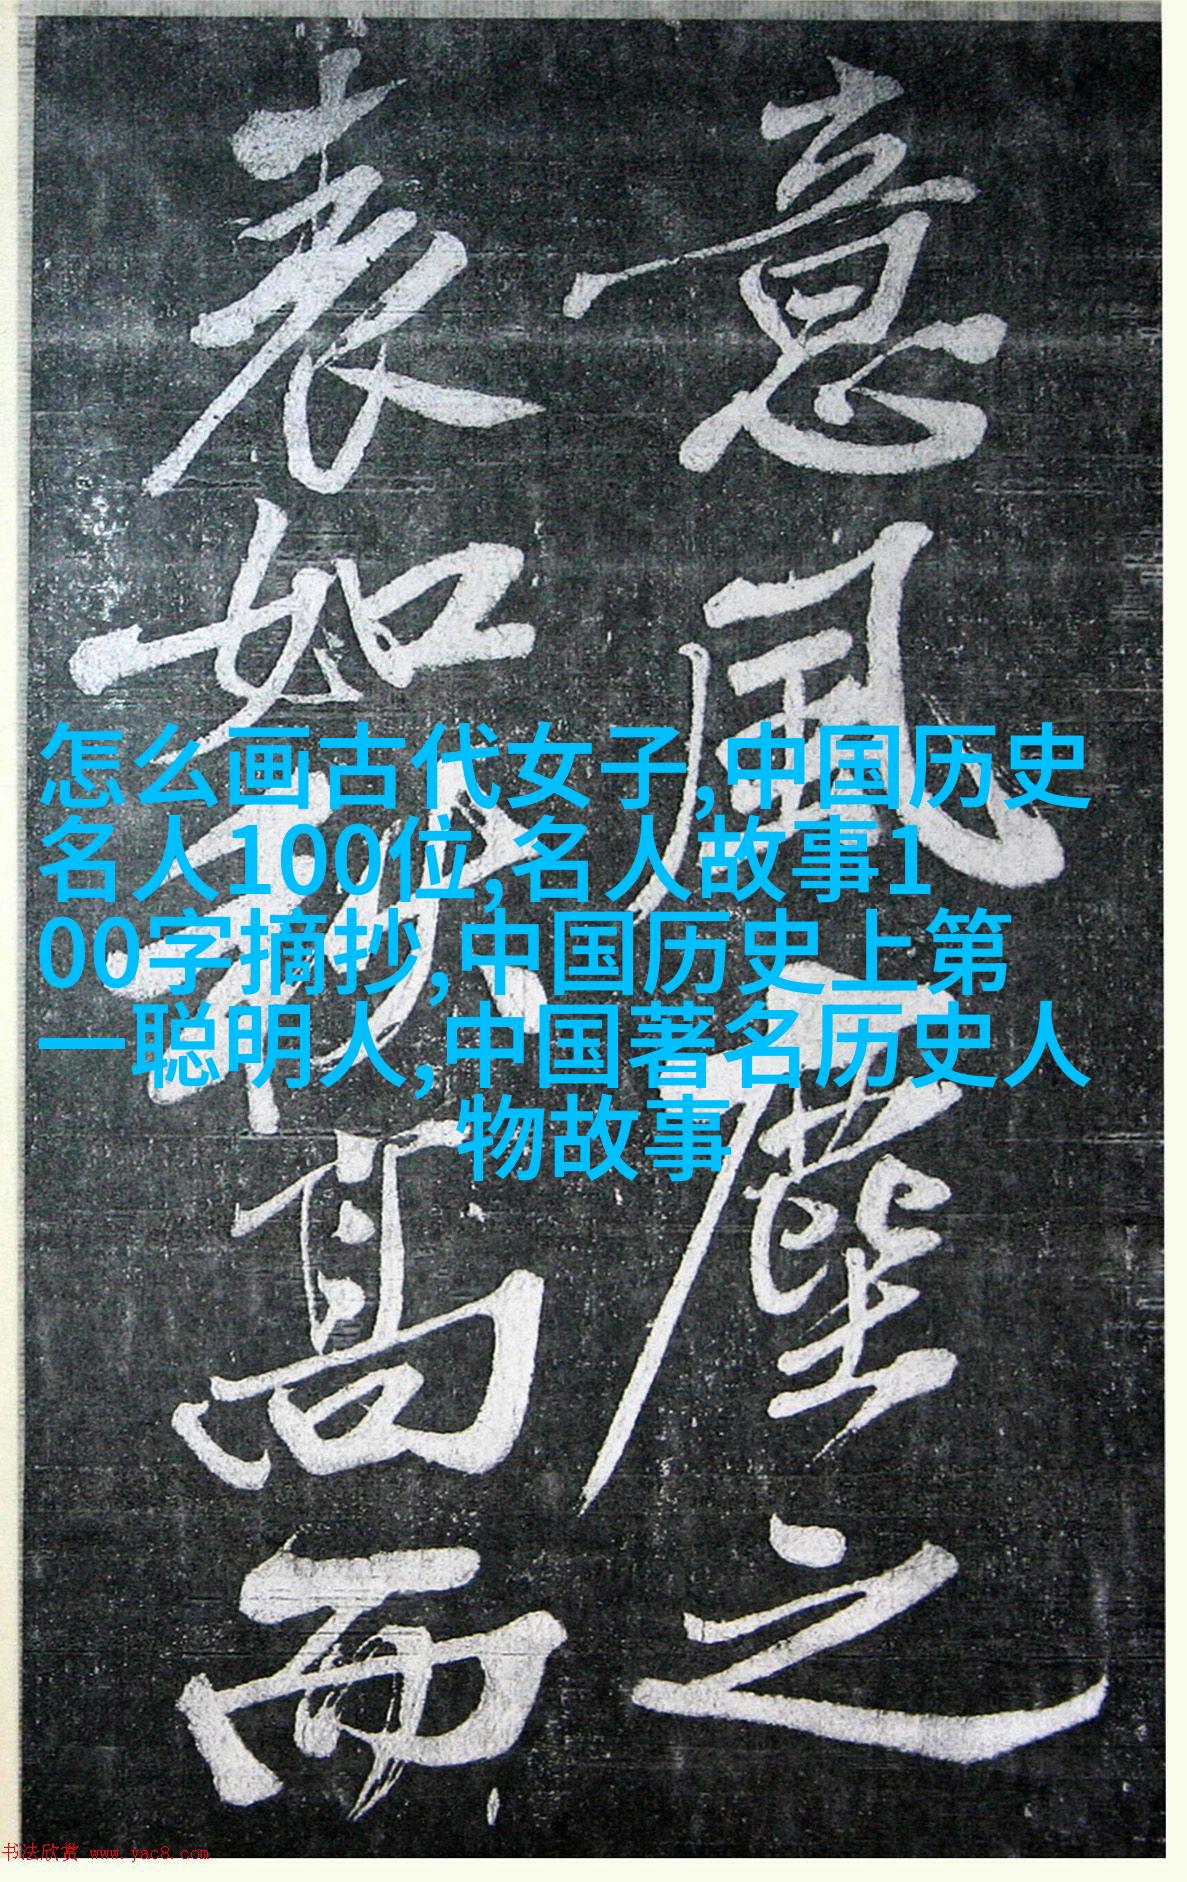 意風塵之
表如秋高而
怎么画古代女子,中国历史
名人100位,名人故事1
00字摘抄,中国历史上第
一聪明人,中国著名历史人
物故事
书法欣赏 www.yac8.com